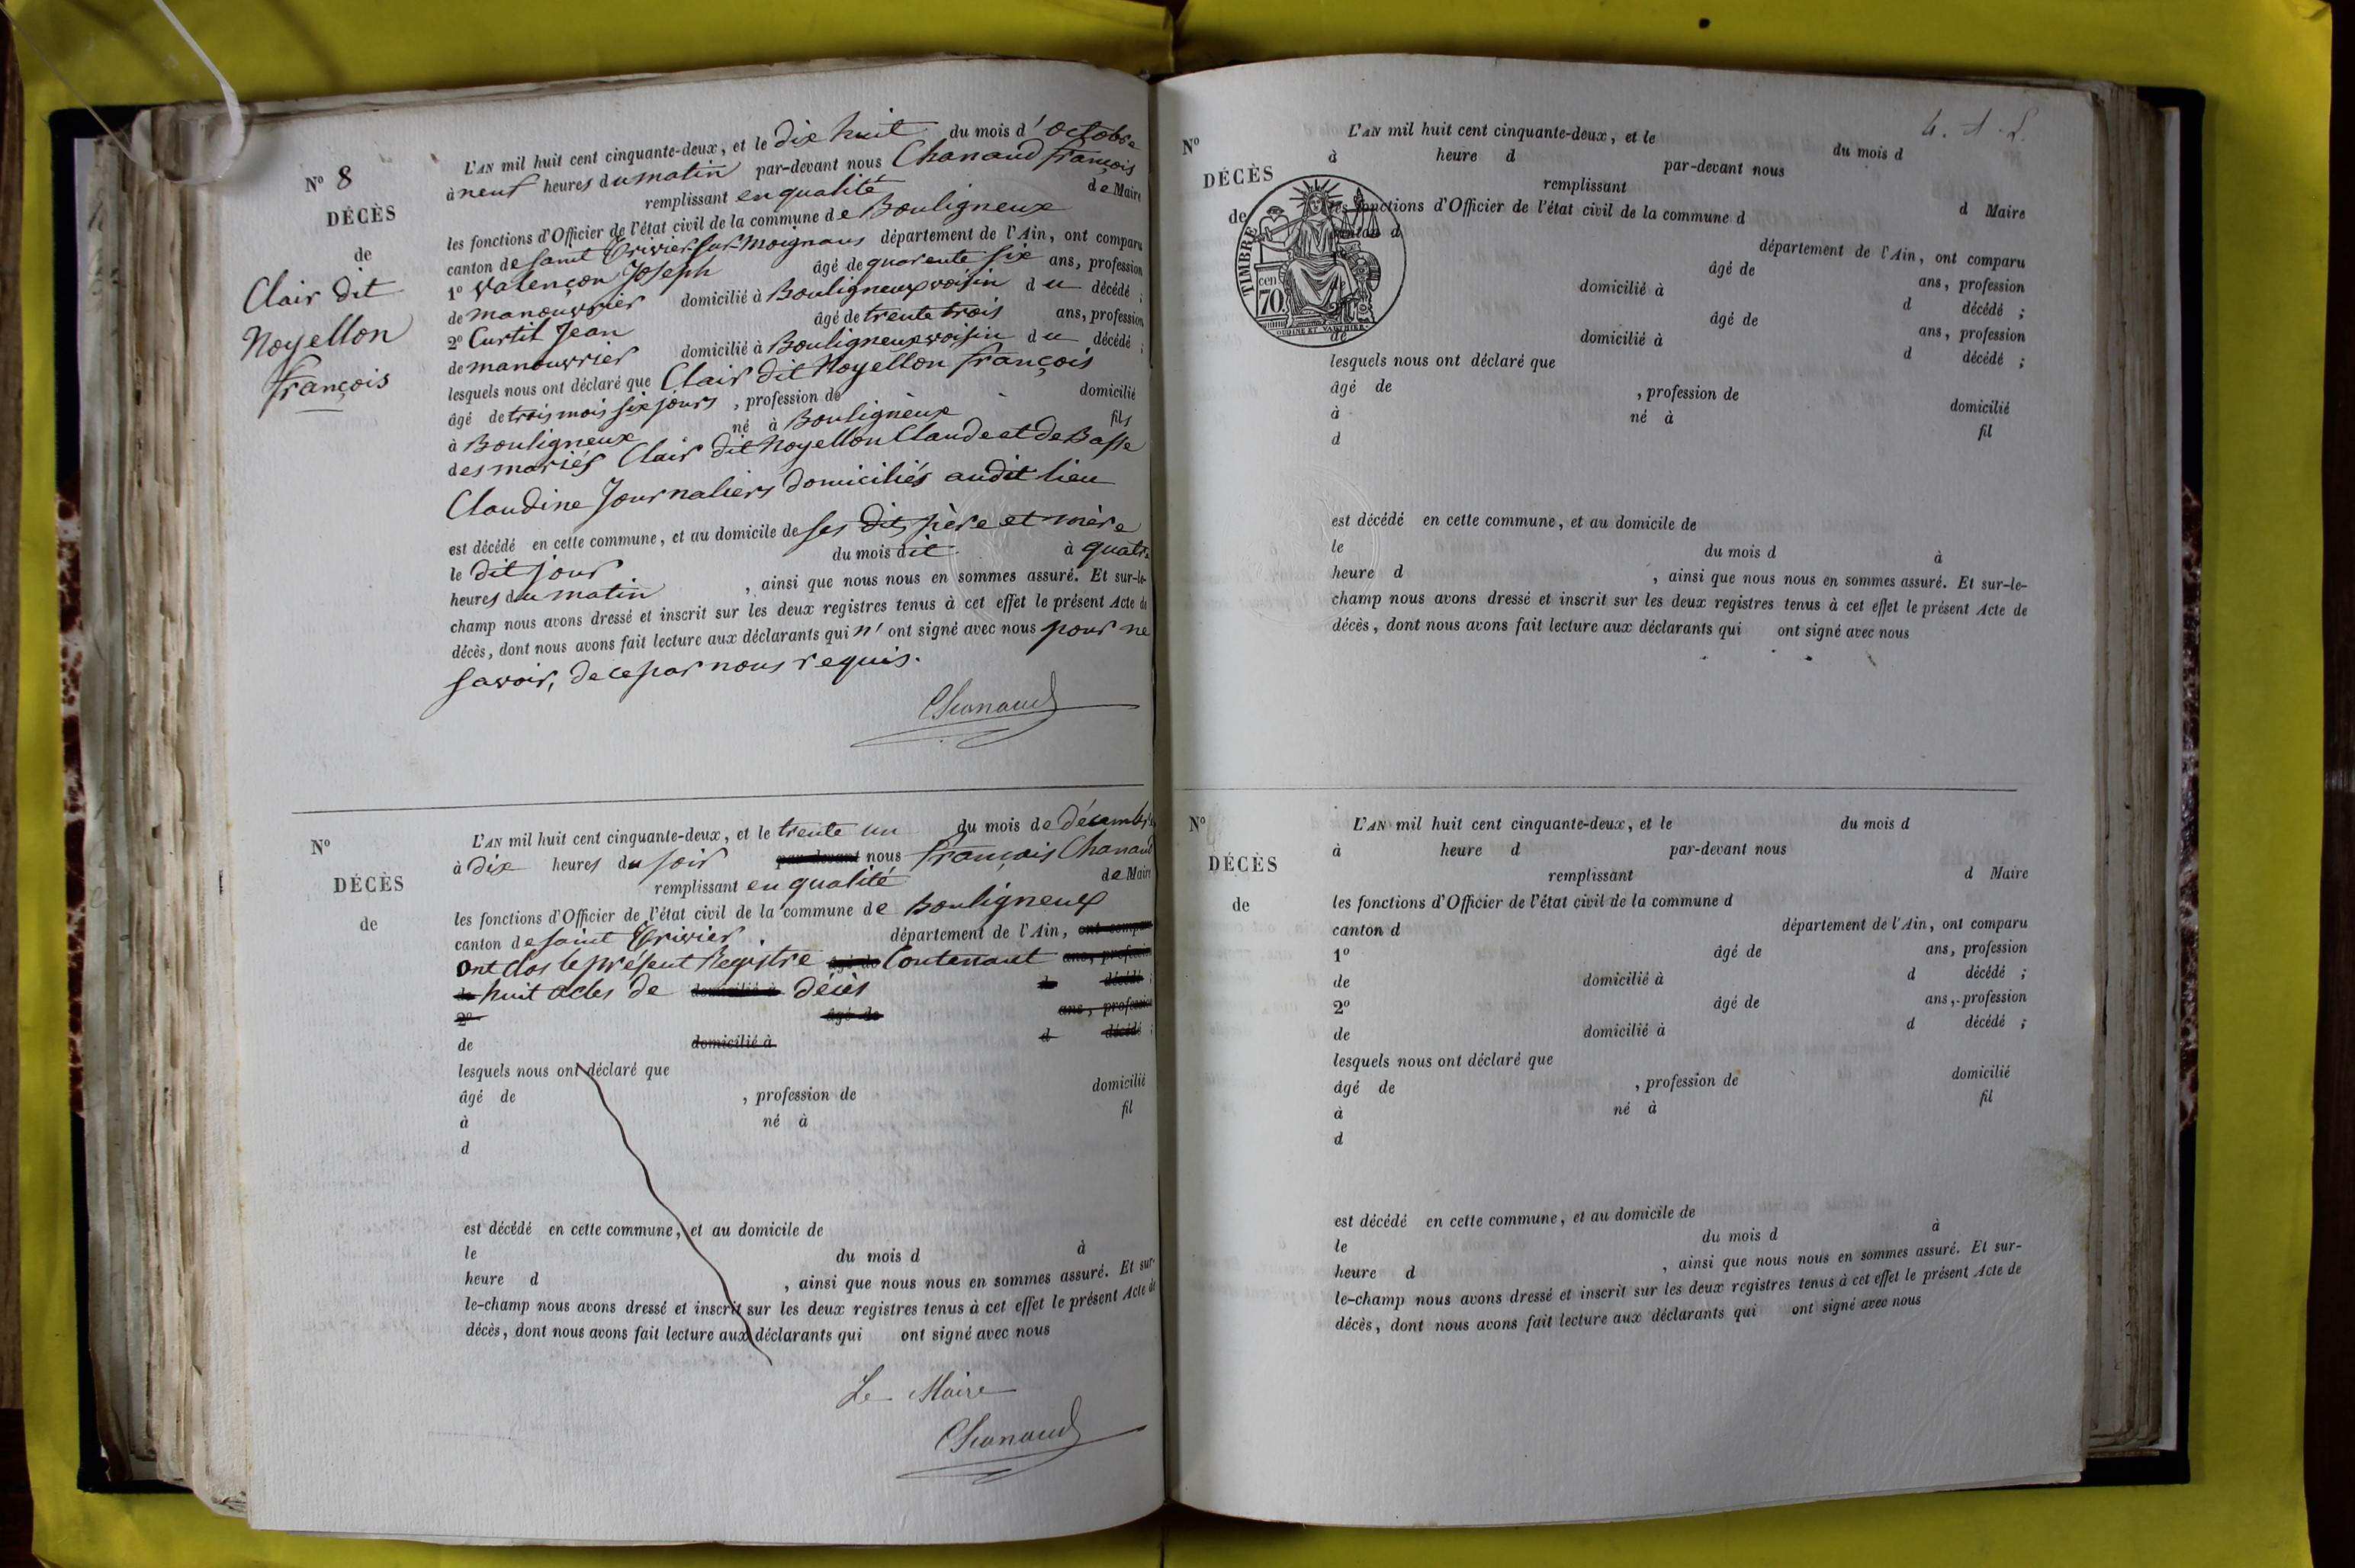 N° 8
DÉCÈS
de
Clair dit
Noyellon
françois
L'AN mil huit cent cinquante-deux, et le dix huit du mois d'octobre
à neuf heures du matin par-devant nous Chanaud françois
remplissant en qualité de Maire
les fonctions d'Officier de l'état civil de la commune de Bouligneux
canton de saint Trivier sur moignans département de l'Ain, ont comparu
1° Valençon Joseph âgé de quarente six ans, profession
de manouvrier domicilié à Bouligneux voisin du décédé ;
2° Curtil Jean âgé de trente trois ans, profession
de manouvrier domicilié à Bouligneux voisin du décédé ;
lesquels nous ont déclaré que Clair dit Noyellon françois
âgé de trois mois six jours , profession de domicilié
à Bouligneux né à Bouligneux fils
des mariés Clair dit Noyellon Claude et de Basse
Claudine Journaliers domiciliés audit lieu
est décédé en cette commune, et au domicile de ses dits père et mère
le dit jour du mois dit à quatre
heures du matin , ainsi que nous nous en sommes assuré. Et sur-le-
champ nous avons dressé et inscrit sur les deux registres tenus à cet effet le présent Acte de
décès, dont nous avons fait lecture aux déclarants qui n'ont signé avec nous pour ne
savoir, de ce par nous requis.
Chanaud
N°
DÉCÈS
de
L'AN mil huit cent cinquante-deux, et le trente un du mois de décembre
à dix heures du soir par-devant nous françois Chanaud
remplissant en qualité de Maire
les fonctions d'Officier de l'état civil de la commune de Bouligneux
canton de saint Trivier département de l'Ain, ont comparu
ont clos le présent Registre âgé de Contenant ans, profession
de huit actes de domicilié à décès d décédé ;
2° âgé de ans, profession
de domicilié à d décédé ;
lesquels nous ont déclaré que
âgé de , profession de domicilié
à né à fil
d
est décédé en cette commune, et au domicile de
le du mois d à
heure d , ainsi que nous nous en sommes assuré. Et sur-
le-champ nous avons dressé et inscrit sur les deux registres tenus à cet effet le présent Acte de
décès, dont nous avons fait lecture aux déclarants qui ont signé avec nous
Le Maire
Chanaud
N°
DÉCÈS
de
L'AN mil huit cent cinquante-deux, et le du mois d
à heure d par-devant nous
remplissant d Maire
les fonctions d'Officier de l'état civil de la commune d
canton d département de l'Ain, ont comparu
âgé de ans, profession
domicilié à d décédé ;
âgé de ans, profession
de domicilié à d décédé ;
TIMBRE
cen
70
OUDINE ET VAUTHIER
lesquels nous ont déclaré que
âgé de , profession de domicilié
à né à fil
d
est décédé en cette commune, et au domicile de
le du mois d à
heure d , ainsi que nous nous en sommes assuré. Et sur-le-
champ nous avons dressé et inscrit sur les deux registres tenus à cet effet le présent Acte de
décès, dont nous avons fait lecture aux déclarants qui ont signé avec nous
N°
DÉCÈS
de
L'AN mil huit cent cinquante-deux, et le du mois d
à heure d par-devant nous
remplissant d Maire
les fonctions d'Officier de l'état civil de la commune d
canton d département de l'Ain, ont comparu
1° âgé de ans, profession
de domicilié à d décédé ;
2° âgé de ans, profession
de domicilié à d décédé ;
lesquels nous ont déclaré que
âgé de , profession de domicilié
à né à fil
d
est décédé en cette commune, et au domicile de
le du mois d à
heure d , ainsi que nous nous en sommes assuré. Et sur-
le-champ nous avons dressé et inscrit sur les deux registres tenus à cet effet le présent Acte de
décès, dont nous avons fait lecture aux déclarants qui ont signé avec nous